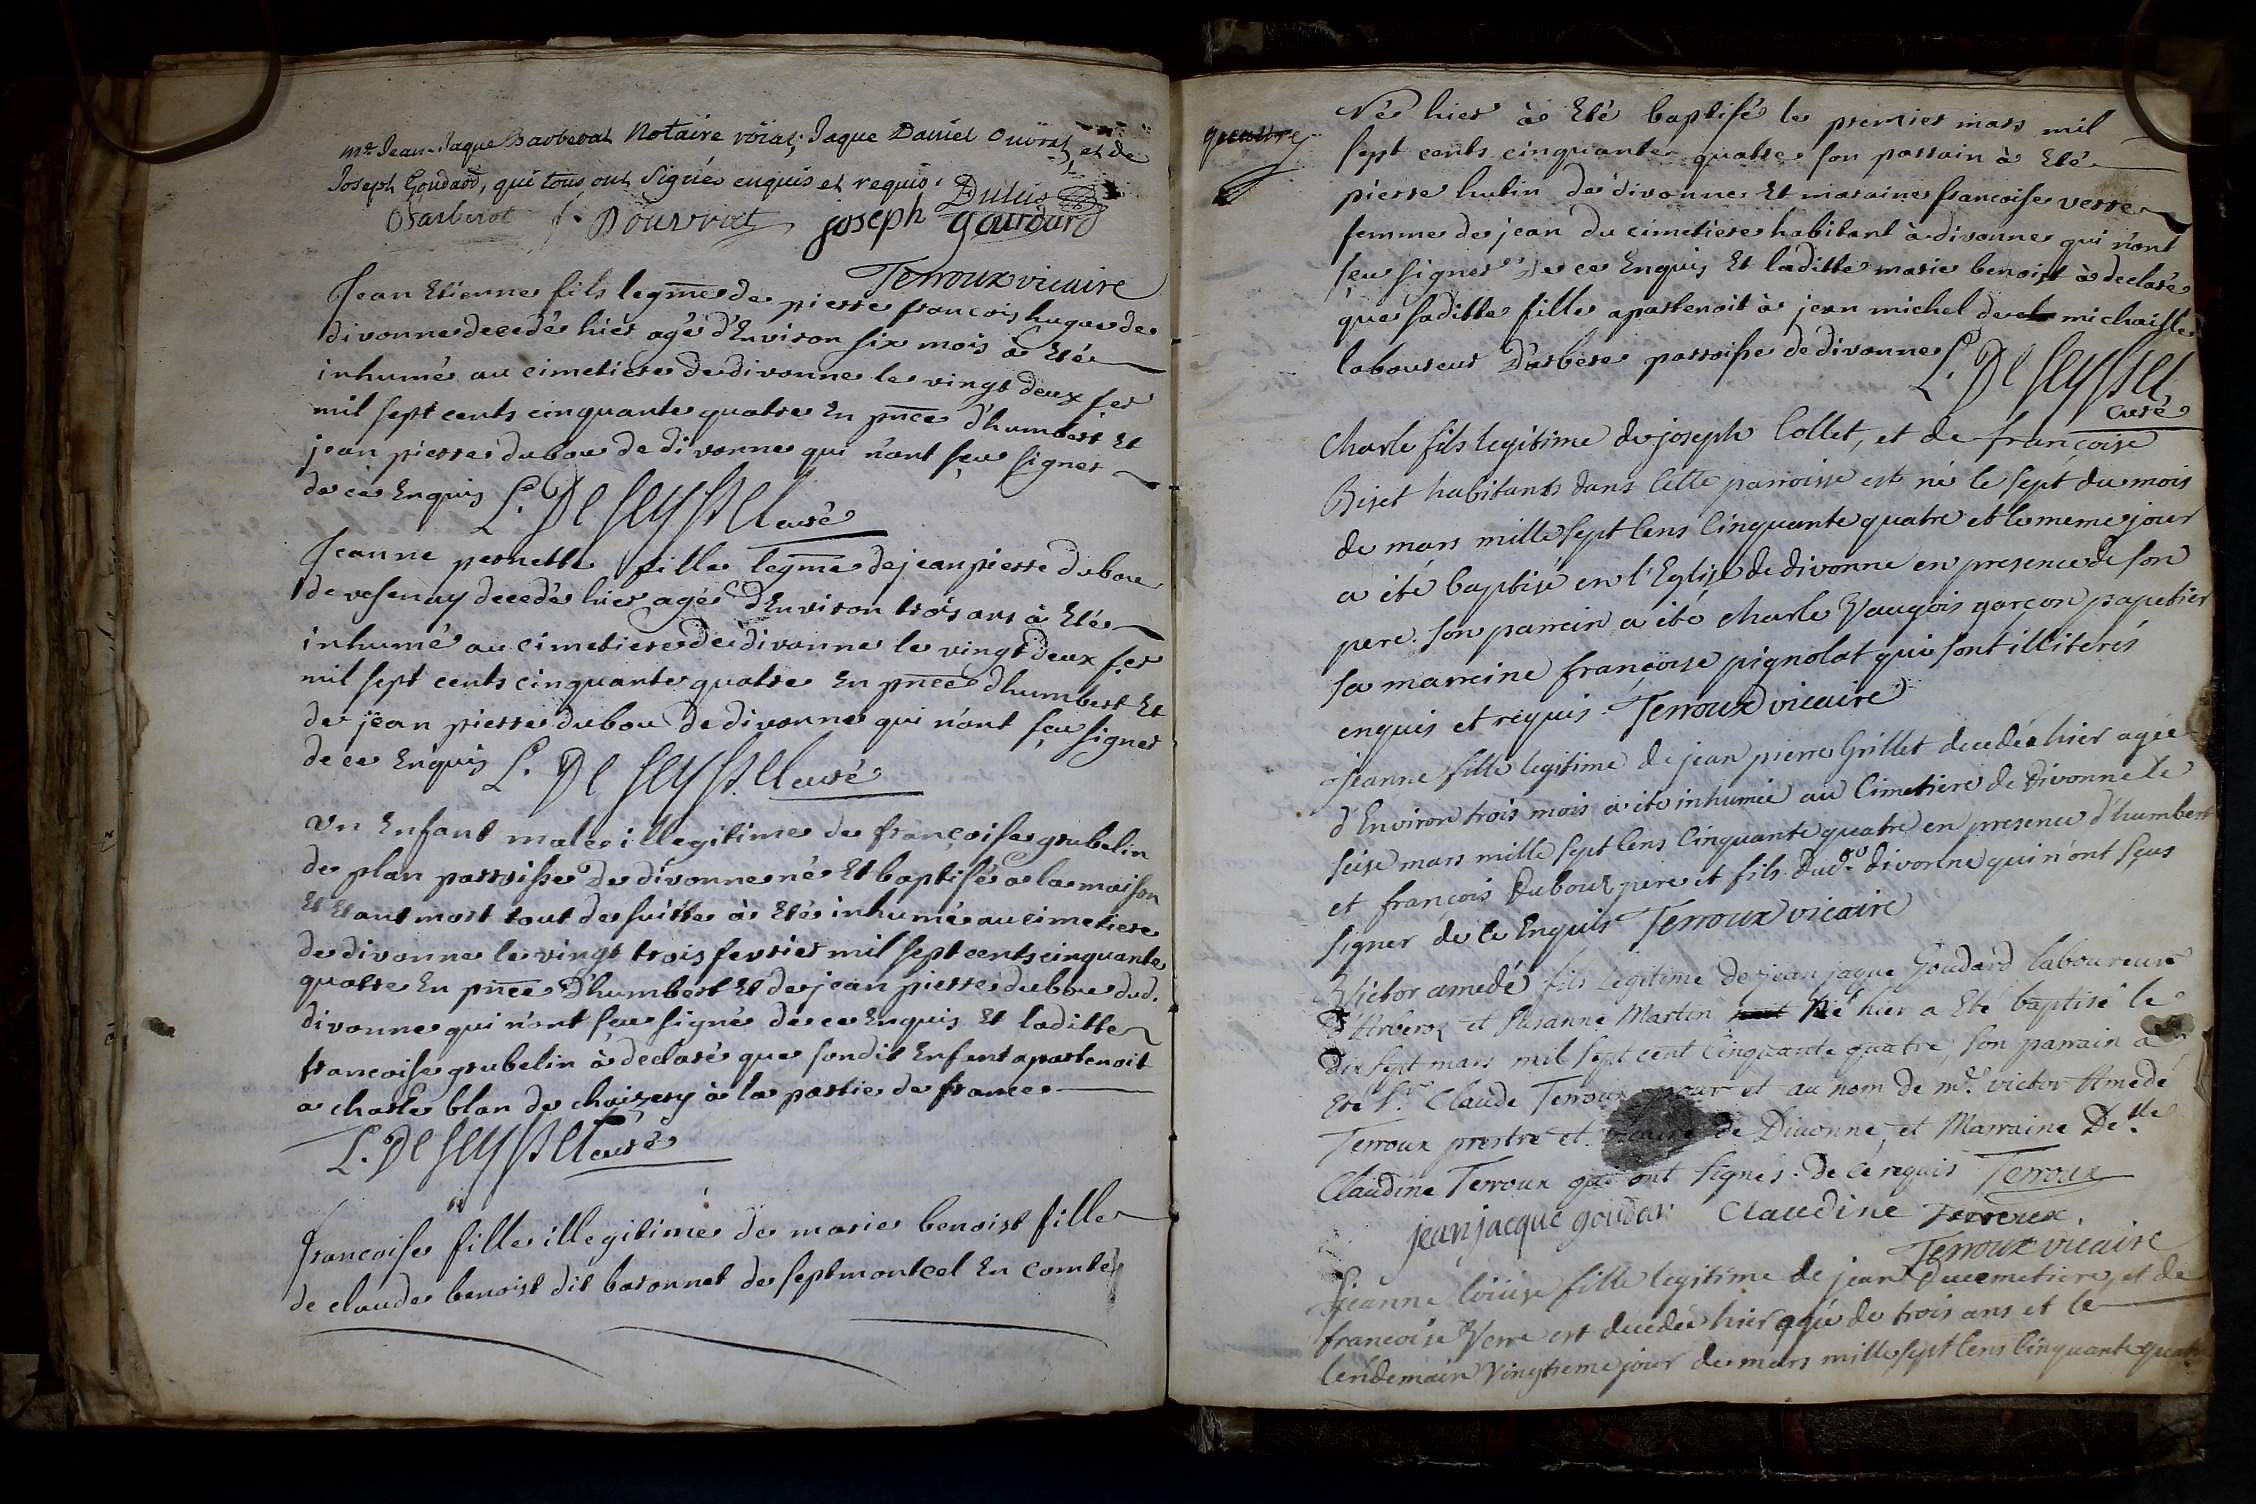 mr Jean-Jaque Barberat Notaire röial, Jaque Daniel Ouvrat, et de
Joseph Goudard, qui tous ont signés enquis et requis.
Barberat J. Douvrat joseph gourdard
Terroux vicaire
Jean Etienne fils legme de pierre francois hugue de
divonne decedé hier agé d'Environ six mois à Eté
inhumé au cimetiere de divonne le vingt deux fer
mil sept cents cinquante quatre En pnce d'humbert Et
jean pierre dubou de divonne qui n'ont sçeu signer
de ce Enquis L. De Seyssel curé
Jeanne pernette fille legme de jean pierre dubou
de vesenay decedé hier agé d'Environ trois ans à Eté
inhumé au cimetiere de divonne le vingt deux fer
mil sept cents cinquante quatre En pnce d'humbert Et
de jean pierre dubou de divonne qui n'ont sçeu signer
de ce Enquis L. De Seyssel curé
Un Enfant male illegitime de françoise grubelin
de plan parroisse de divonne né Et baptisé a la maison
Et Etant mort tout de suitte à Eté inhumé au cimetiere
de divonne le vingt trois fevrier mil sept cents cinquante
quatre En pnce d'humbert Et de jean pierre dubou dud.
divonne qui n'ont sçeu signé de ce Enquis Et laditte
francoise grubelin à declaré que sondit Enfant apartenoit
a charle blan de chaizery à la partie de france
L. De Seyssel curé
francoise fille illegitime de marie benoist fille
de claude benoist dit baronnet de septmontcel En comté
Née hier à Eté baptisé le premier mars mil
sept cents cinquante quatre son parrain à Eté
pierre hulin de divonne Et maraine francoise verre
femme de jean du cimetiere habitant à divonne qui n'ont
sçeu signer de ce Enquis Et laditte marie benoist à declaré
que saditte fille apartenoit à jean michel de michaille
laboureur d'arbere parroisse de divonne L. De Seyssel
curé
Charle fils legitime de joseph Collet, et de françoise
Biset habitants dans cette parroisse est né le sept du mois
de mars mille sept cens cinquante quatre et le meme jour
a été baptisé en l'Eglise de divonne en presence de son
pere. son parrein a été charle Vaugois garçon papetier
sa marreine françoise pignolat qui sont illiterés
enquis et requis. Terroux vicaire
Jeanne fille legitime de jean pierre Grillet decedée hier agée
d'Environ trois mois a été inhumée au Cimetiere de Divonne le
seise mars mille sept cens cinquante quatre en presence d'humbert
et françois Dubout pere et fils dud. divonne qui n'ont sçus
signer de ce Enquis Terroux vicaire
Victor amedé fils legitime de jean jaque Goudard laboureur
d'Arberoz et Susanne Martin né hier a Eté baptisé le
dix sept mars mil sept cent cinquante quatre, son parrain a
Eté sr. Claude Terroux pour et au nom de mr. victor Amedé
Terroux prestre et vicaire de Divonne, et Marraine Delle
Claudine Terroux qui ont signés. de ce requis Terroux
jean jacque goudar Claudine Terroux
Terroux vicaire
Jeanne loüise fille legitime de jean Ducemetiere, et de
francoise Verre est decedée hier agée de trois ans et le
lendemain vingtieme jour de mars mille sept cens cinquante quatre